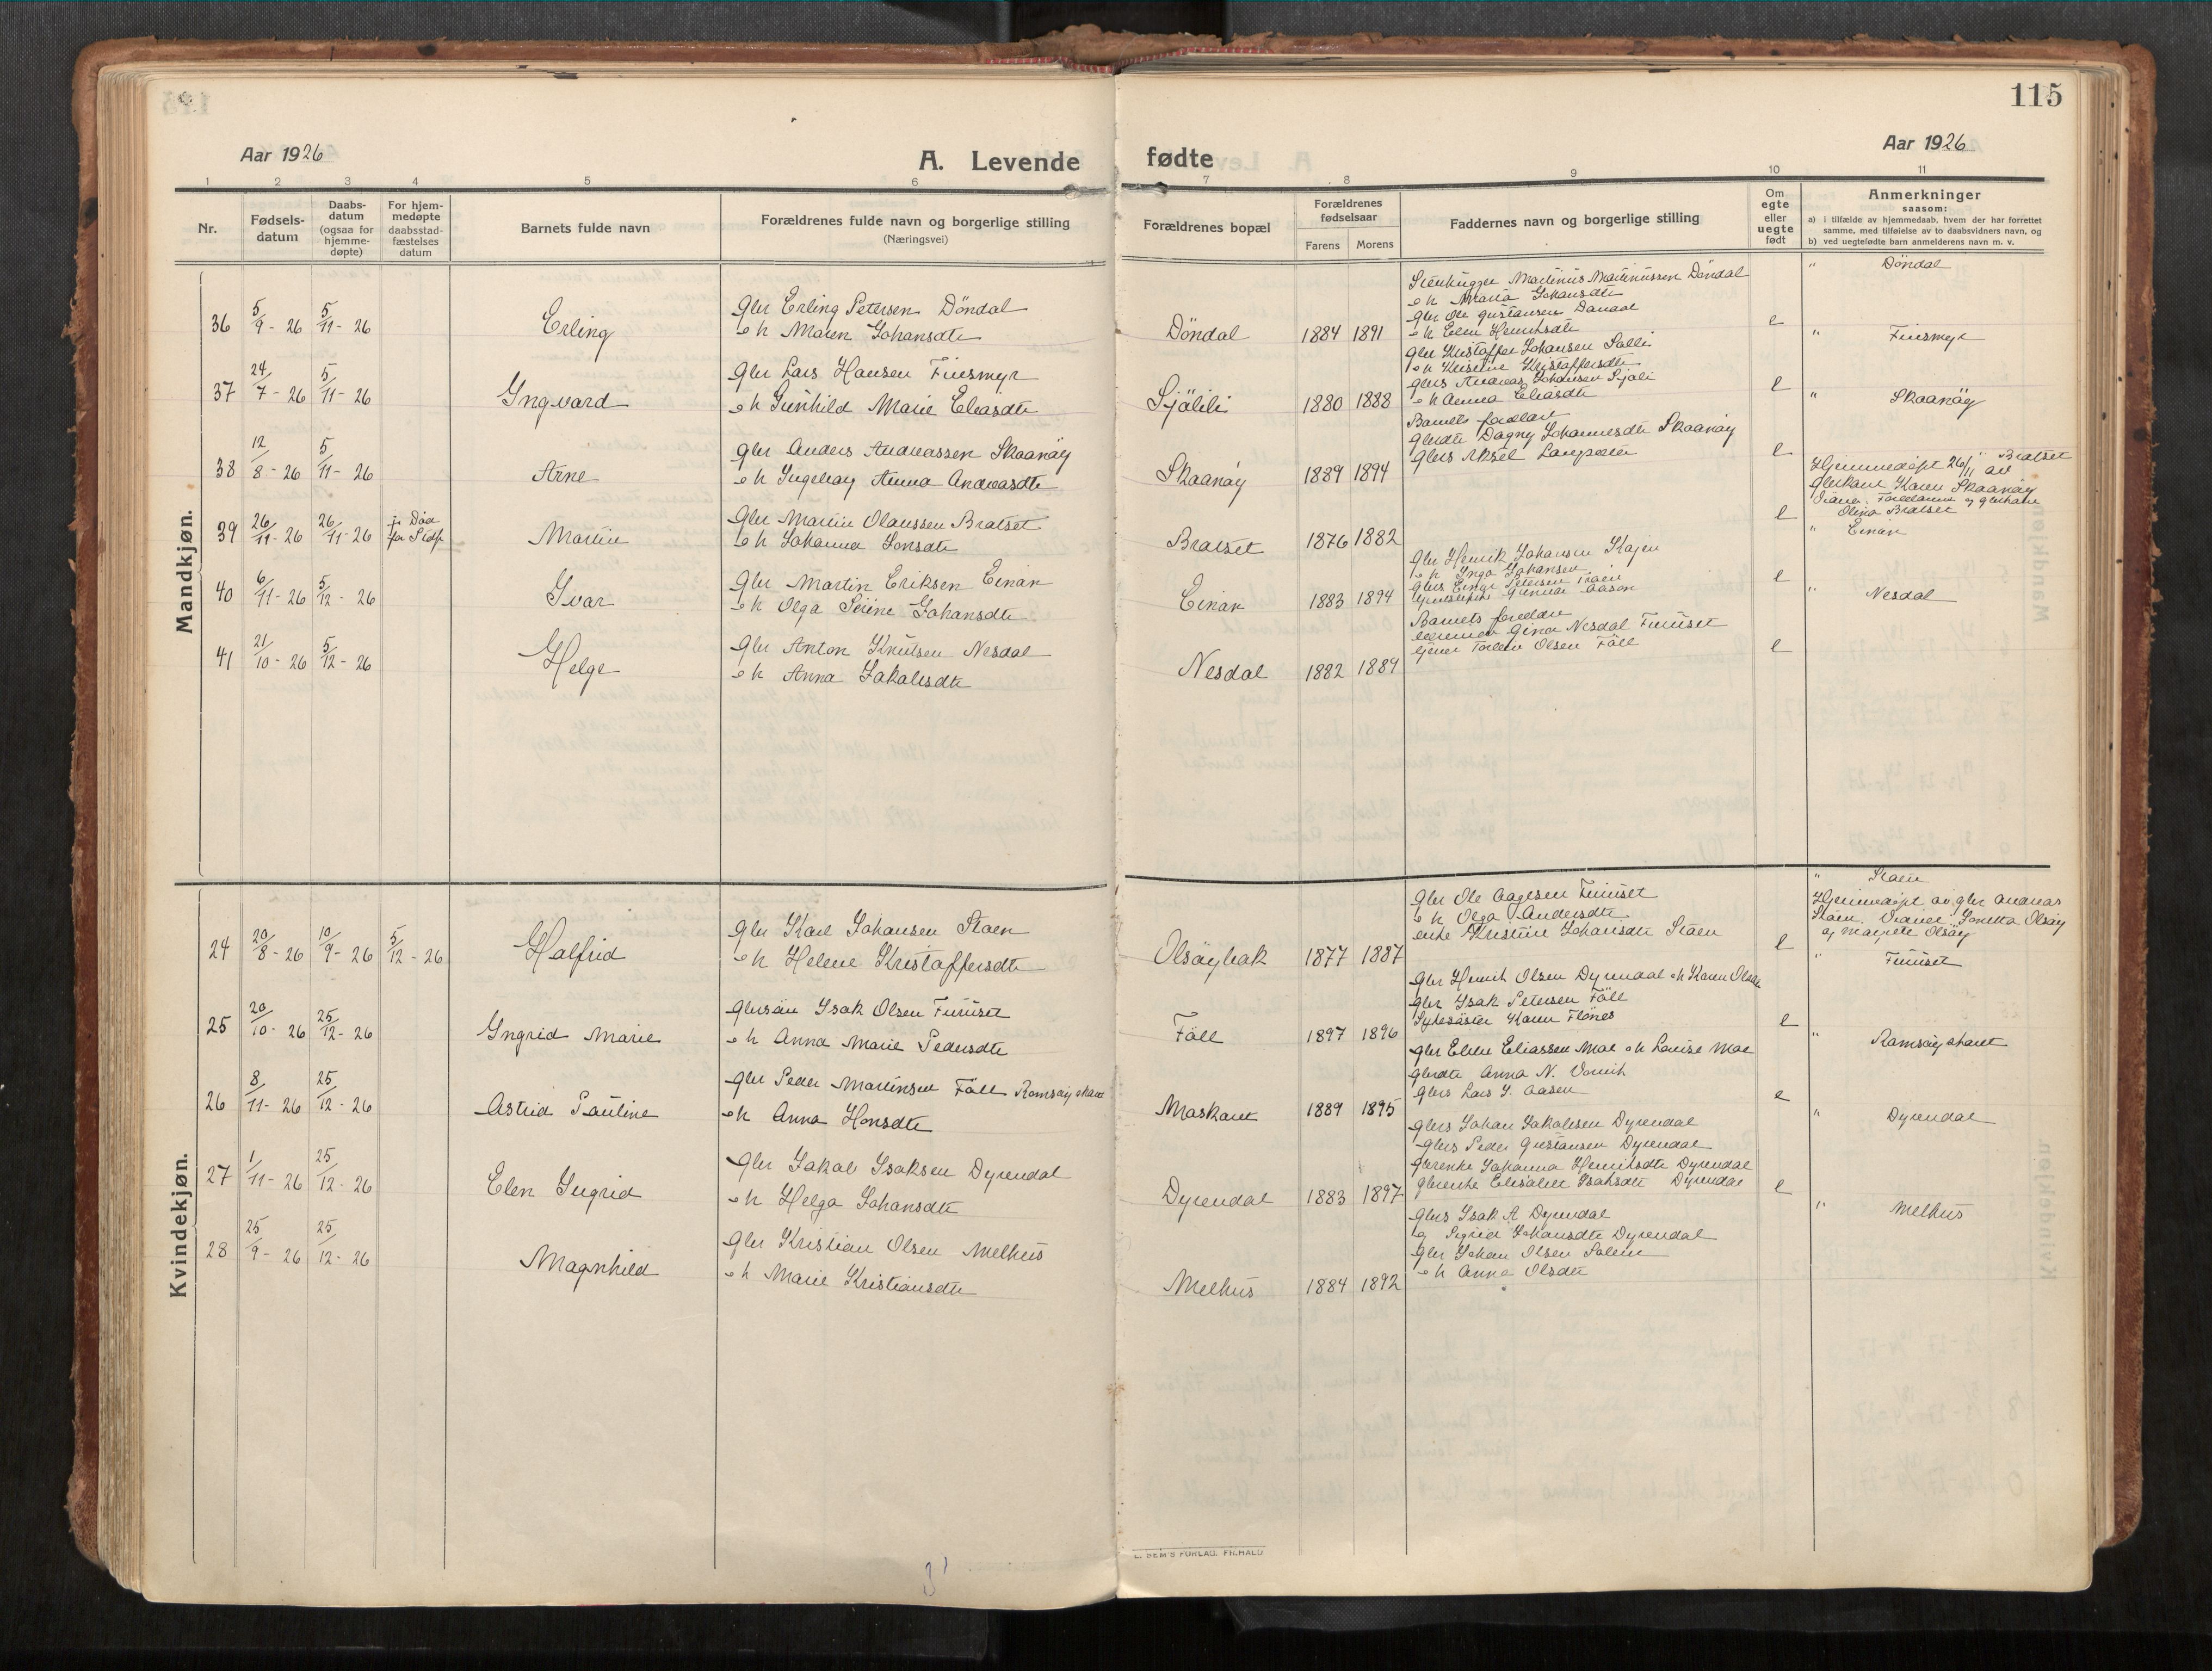 115
Aar 1926
A. Levende fødte
Aar 1926
1 2 3 4 5 6 7 8 9 10 11
Nr.
Fødsels-
datum
Daabs-
datum
(ogsaa for
hjemme-
døpte)
For hjem-
medøpte
daabsstad-
fæstelses
datum
Barnets fulde navn
Forældrenes fulde navn og borgerlige stilling
(Næringsvei)
Forældrenes bopæl
Forældrenes
fødselsaar
Farens Morens
Faddernes navn og borgerlige stilling
Om
egte
eller
uegte
født
Anmerkninger
saasom:
a) i tilfælde av hjemmedaab, hvem der har forrettet
samme, med tilføielse av to daabsvidners navn, og
b) ved uegtefødte barn anmelderens navn m. v.
Mandkjøn.
36 5/9 - 26 5/11 - 26 Erling
Gbr Erling Petersen Döndal
o h Maren Johansdtr
Döndal 1884 1891
Martinus Martinussen Döndal
o h Maria Johansdtr
Gbr Ole Gustavsen Döndal
o h Elen Henriksdtr
e
" Döndal
37 24/7 - 26 5/11 - 26 Ingvard
Gbr Lars Hansen Fuesmyr
o h Gunhild Marie Eliasdtr
Sjölili 1880 1888
Gbr Kristoffer Johansen Salli
o h Kristine Kristoffersdtr
Gbrs Andreas Johansen Sjöli
o h Anna Eliasdtr
e
" Fuesmyr
38 12/8 - 26 5/11 - 26 Arne
Gbr Anders Andreassen Skaanöy
o h Ingeborg Anna Andreasdtr
Skaanöy 1889 1894
Barnets forældre
Gbrdtr Dagny Johannesdtr Skaanöy
Gbrs Aksel Langsæter
e
" Skaanöy
39 26/11 - 26 26/11 - 26 Död
Martin
Gbr Martin Olaussen Bratset
o h Johanna Jonsdtr
Bratset 1876 1882
e
" Bratset
Hjemmedöpt 26/11 av
Gbrkone Karen Skaanöy
Forældrene og gbrkone
Olina Bratset
40 6/11 - 26 5/12 - 26 Ivar
Gbr Martin Eriksen Einan
o h Olga Serine Johansdtr
Einan 1883 1894
Gbr Henrik Johansen
o h Inga Johansen
Gunnar Aasen
e
" Einan
41 21/10 - 26 5/12 - 26 Helge
Gbr Anton Knutsen Nesdal
o h Anna Jakobsdtr
Nesdal 1882 1889
Barnets forældre
Gina Nesdal Furuset
Olsen Föll
e
" Nesdal
Kvindekjøn.
24 20/8 - 26 10/9 - 26 5/12 - 26 Halfrid
Gbr Karl Johansen Staen
o h Helene Kristoffersdtr
Olsöybak 1877 1887
Gbr Ole Aagesen Furuset
o h Olga Andersdtr
enke Kristine Johansdtr Staen
e
" Staen
Hjemmedöpt av gbr Andreas
Staen. Vidner: Jonetta Olsöy
og Margrete Olsöy
25 20/10 - 26 25/12 - 26 Yngrid Marie
Gbrsön Isak Olsen Furuset
o h Anna Marie Pedersdtr
Föll 1897 1896
Gbr Henrik Olsen Dyrendal o h Karen Olsdtr
Gbr Isak Petersen Föll
Sykesöster Karen Flönes
e
" Furuset
26 8/11 - 26 25/12 - 26 Astrid Pauline
Gbr Peder Martinsen Föll Ramsöyskaret
o h Anna Honsdtr
Moskaret 1889 1895
Gbr Elias Eliassen Moe o h Louise Moe
Gbrdtr Anna N.
Gbrs Lars J. Aasen
e
" Ramsöyskaret
27 1/11 - 26 25/12 - 26 Elen Ingrid
Gbr Jakob Isaksen Dyrendal
o h Helga Johansdtr
Dyrendal 1883 1897
Gbrs Johan Jakobsen Dyrendal
Gbrs Peder Gustavsen Dyrendal
Gbrenke Johanna Henriksdtr Dyrendal
Gbrenke Elisabet Isaksdtr Dyrendal
e
" Dyrendal
28 25/9 - 26 25/12 - 26 Magnhild
Gbr Kristian Olsen Melhus
o h Marie Kristiansdtr
Melhus 1884 1892
Gbrs Isak A Dyrendal
og Sigrid Johansdtr Dyrendal
Gbr Johan Olsen Solem
o h Anna Olsdtr
" Melhus
E. SEM'S FORLAG. FR.HALD